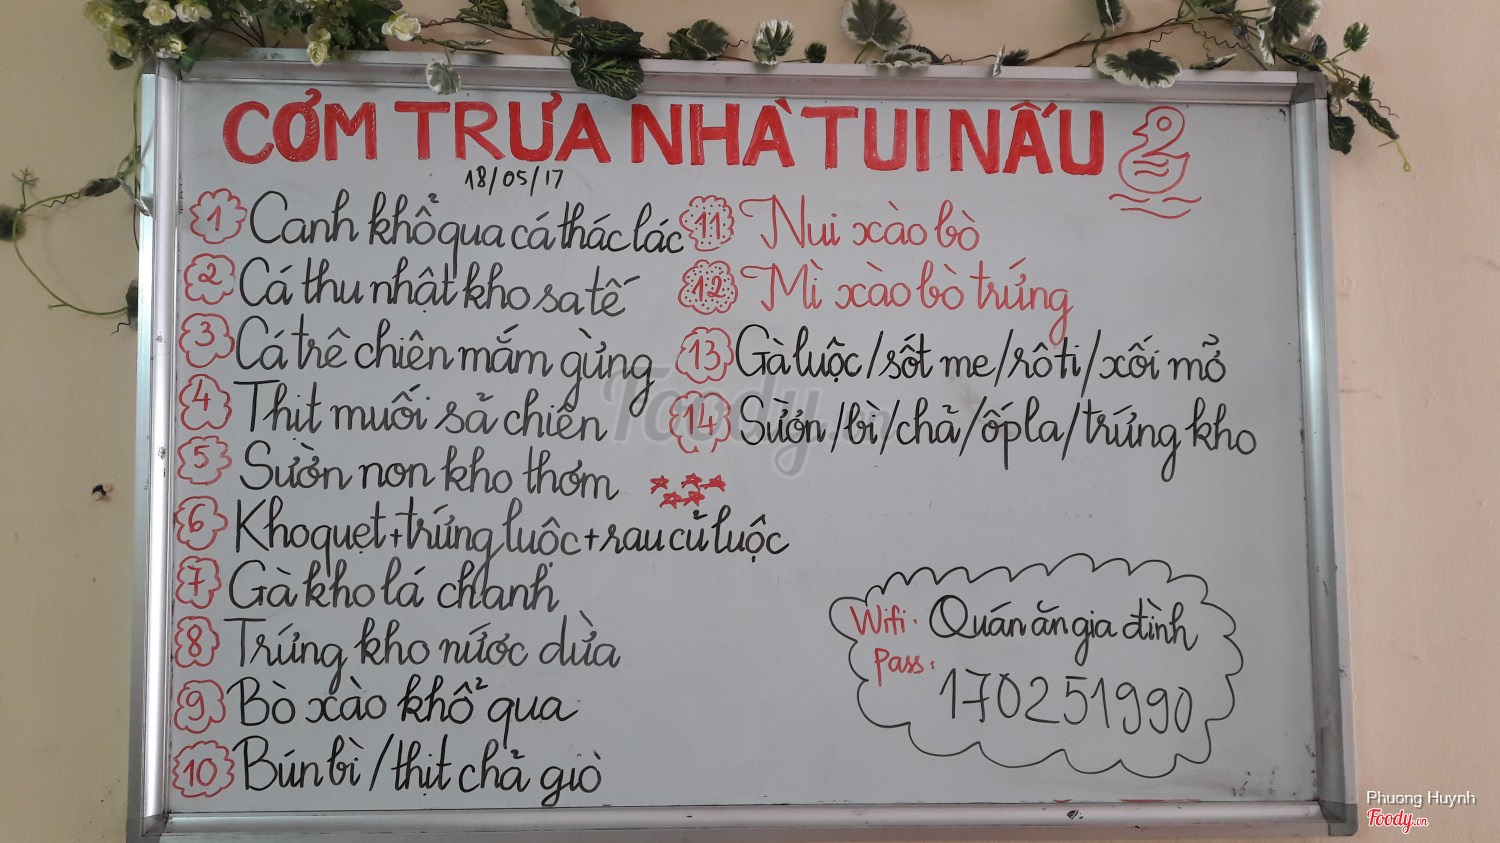 CƠM TRƯA NHÀ TUI NẤU
18/05/17
1 Canh khổ qua cá thác lác
2 Cá thu nhật kho sa tế
3 Cá trê chiên mắm gừng
4 Thịt muối sả chiên
5 Sườn non kho thơm
6 Kho quẹt + trứng luộc + rau củ luộc
7 Gà kho lá chanh
8 Trứng kho nước dừa
9 Bò xào khổ qua
10 Bún bì / thịt chả giò
11 Nui xào bò
12 Mì xào bò trứng
13 Gà luộc / sốt me / rôti / xối mở
14 Sườn / bì / chả / ốp la / trứng kho
Wifi. Quán ăn gia đình
Pass: 170251990
Foody.vn
Phuong Huynh
Foody.vn